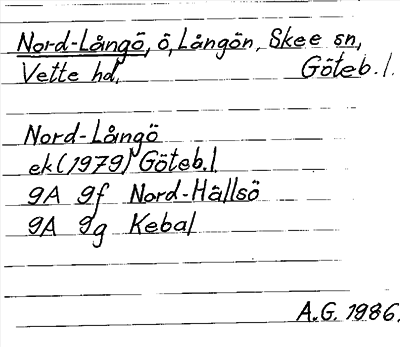 Nord-Långö, ö, Långön, Skee sn,
Vette hd, Göteb. l.
Nord-Långö
ek (1979) Göteb. l
9A 9f Nord-Hällsö
9A 9g Kebal
A.G. 1986.